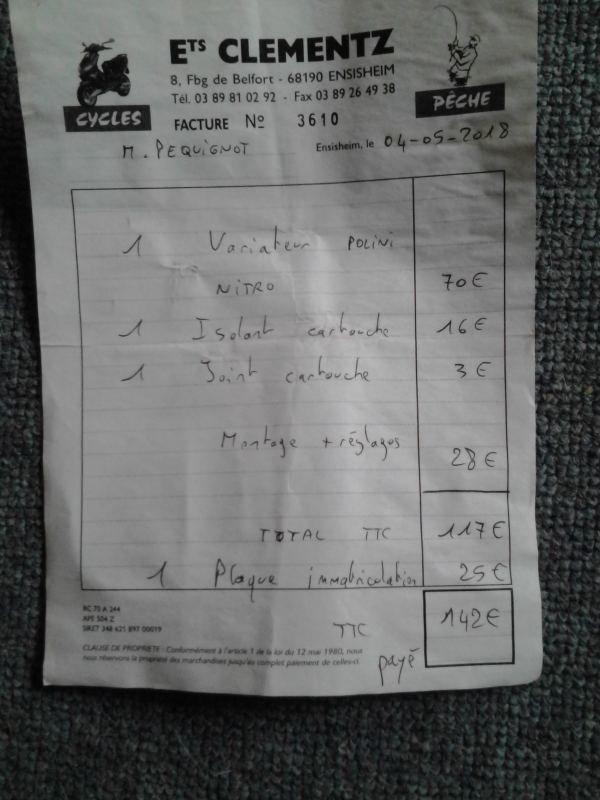 ETS CLEMENTZ
8, Fbg de Belfort - 68190 ENSISHEIM
Tél. 03 89 81 02 92 - Fax 03 89 26 49 38
CYCLES
PÊCHE
FACTURE Nº 3610
M. PEQUIGNOT
Ensisheim, le 04-05-2018
1 Variateur POLINI
NITRO 70€
1 Isolant cartouche 16€
1 Joint cartouche 3€
Montage + réglages 28€
TOTAL TTC 117€
1 Plaque immatriculation 25€
RC 70 A 244
APE 504 Z
SIRET 348 625 897 00019
TTC 142€
CLAUSE DE PROPRIETE : Conformément à l'article 1 de la loi du 12 mai 1980, nous
nous réservons la propriété des marchandises jusqu'au complet paiement de celles-ci.
payé